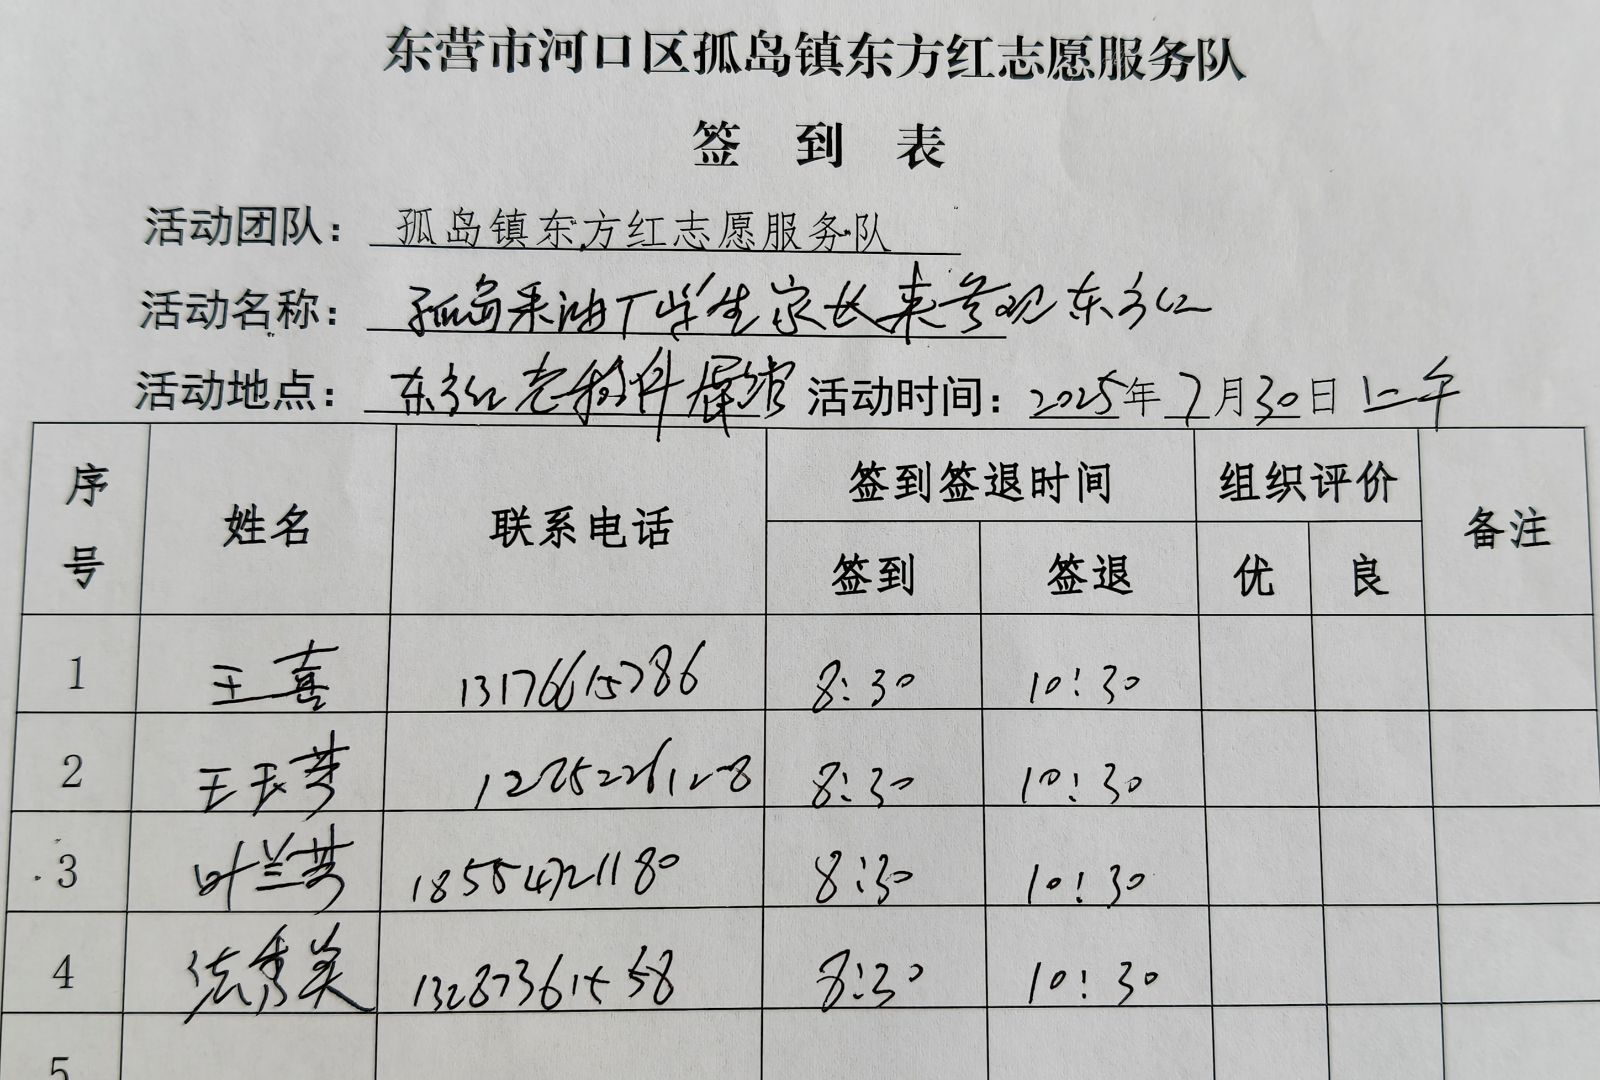 东营市河口区孤岛镇东方红志愿服务队
签 到 表
活动团队：孤岛镇东方红志愿服务队
活动名称：孤岛采油厂学生家长来参观东方红
活动地点：东方红老物件展馆 活动时间：2025年7月30日上午
序号 姓名 联系电话 签到签退时间 组织评价 备注
签到 签退 优 良
1 王喜 13176615786 8:30 10:30
2 王玉芳 8:30 10:30
3 叶兰芳 18554721180 8:30 10:30
4 秀英 13287361558 8:30 10:30
5